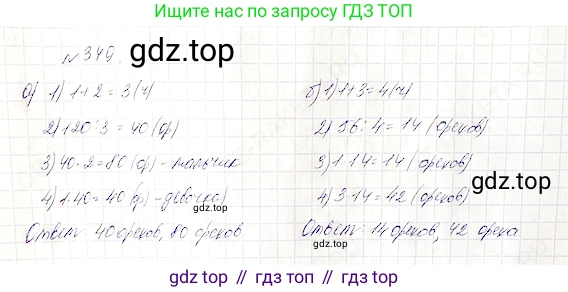 Ищите нас по запросу ГДЗ ТОП
№349.
gdz.top
а) 1) 1+2=3(ч)
2) 120:3=40(ор)
3) 40·2=80(ор)-мальчик
4) 1·40=40(ор)-девочка)
Ответ: 40 орехов, 80 орехов
gdz.top
б) 1) 1+3=4(ч)
2) 56:4=14 (орехов)
3) 1·14=14 (орехов)
4) 3·14=42 (орехов)
Ответ: 14 орехов, 42 ореха
gdz.top
gdz.top
gdz.top // гдз.топ // гдз.топ